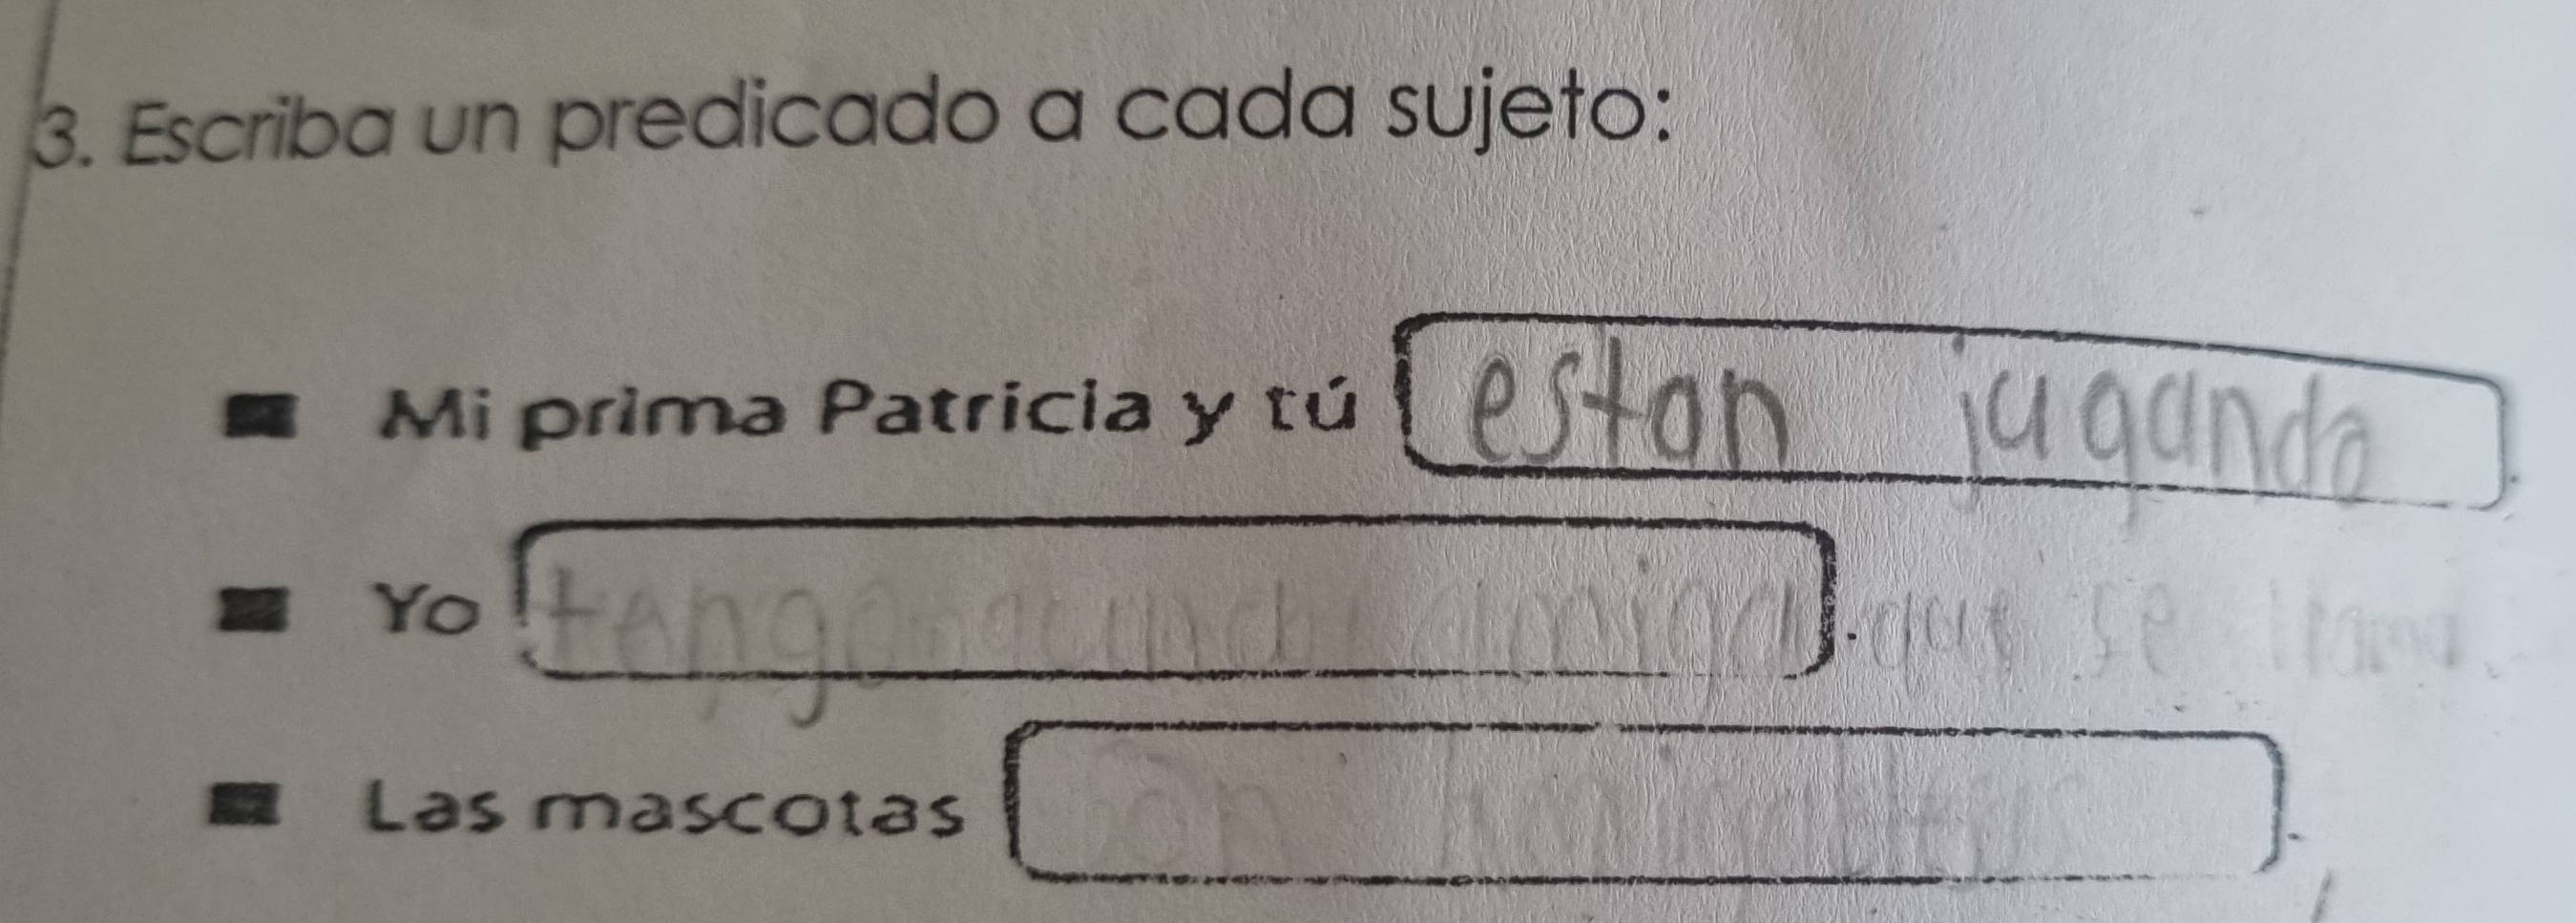 3. Escriba un predicado a cada sujeto:
Mi prima Patricia y tú estan jugando.
Yo tengo una amiga. que se llama
Las mascotas son